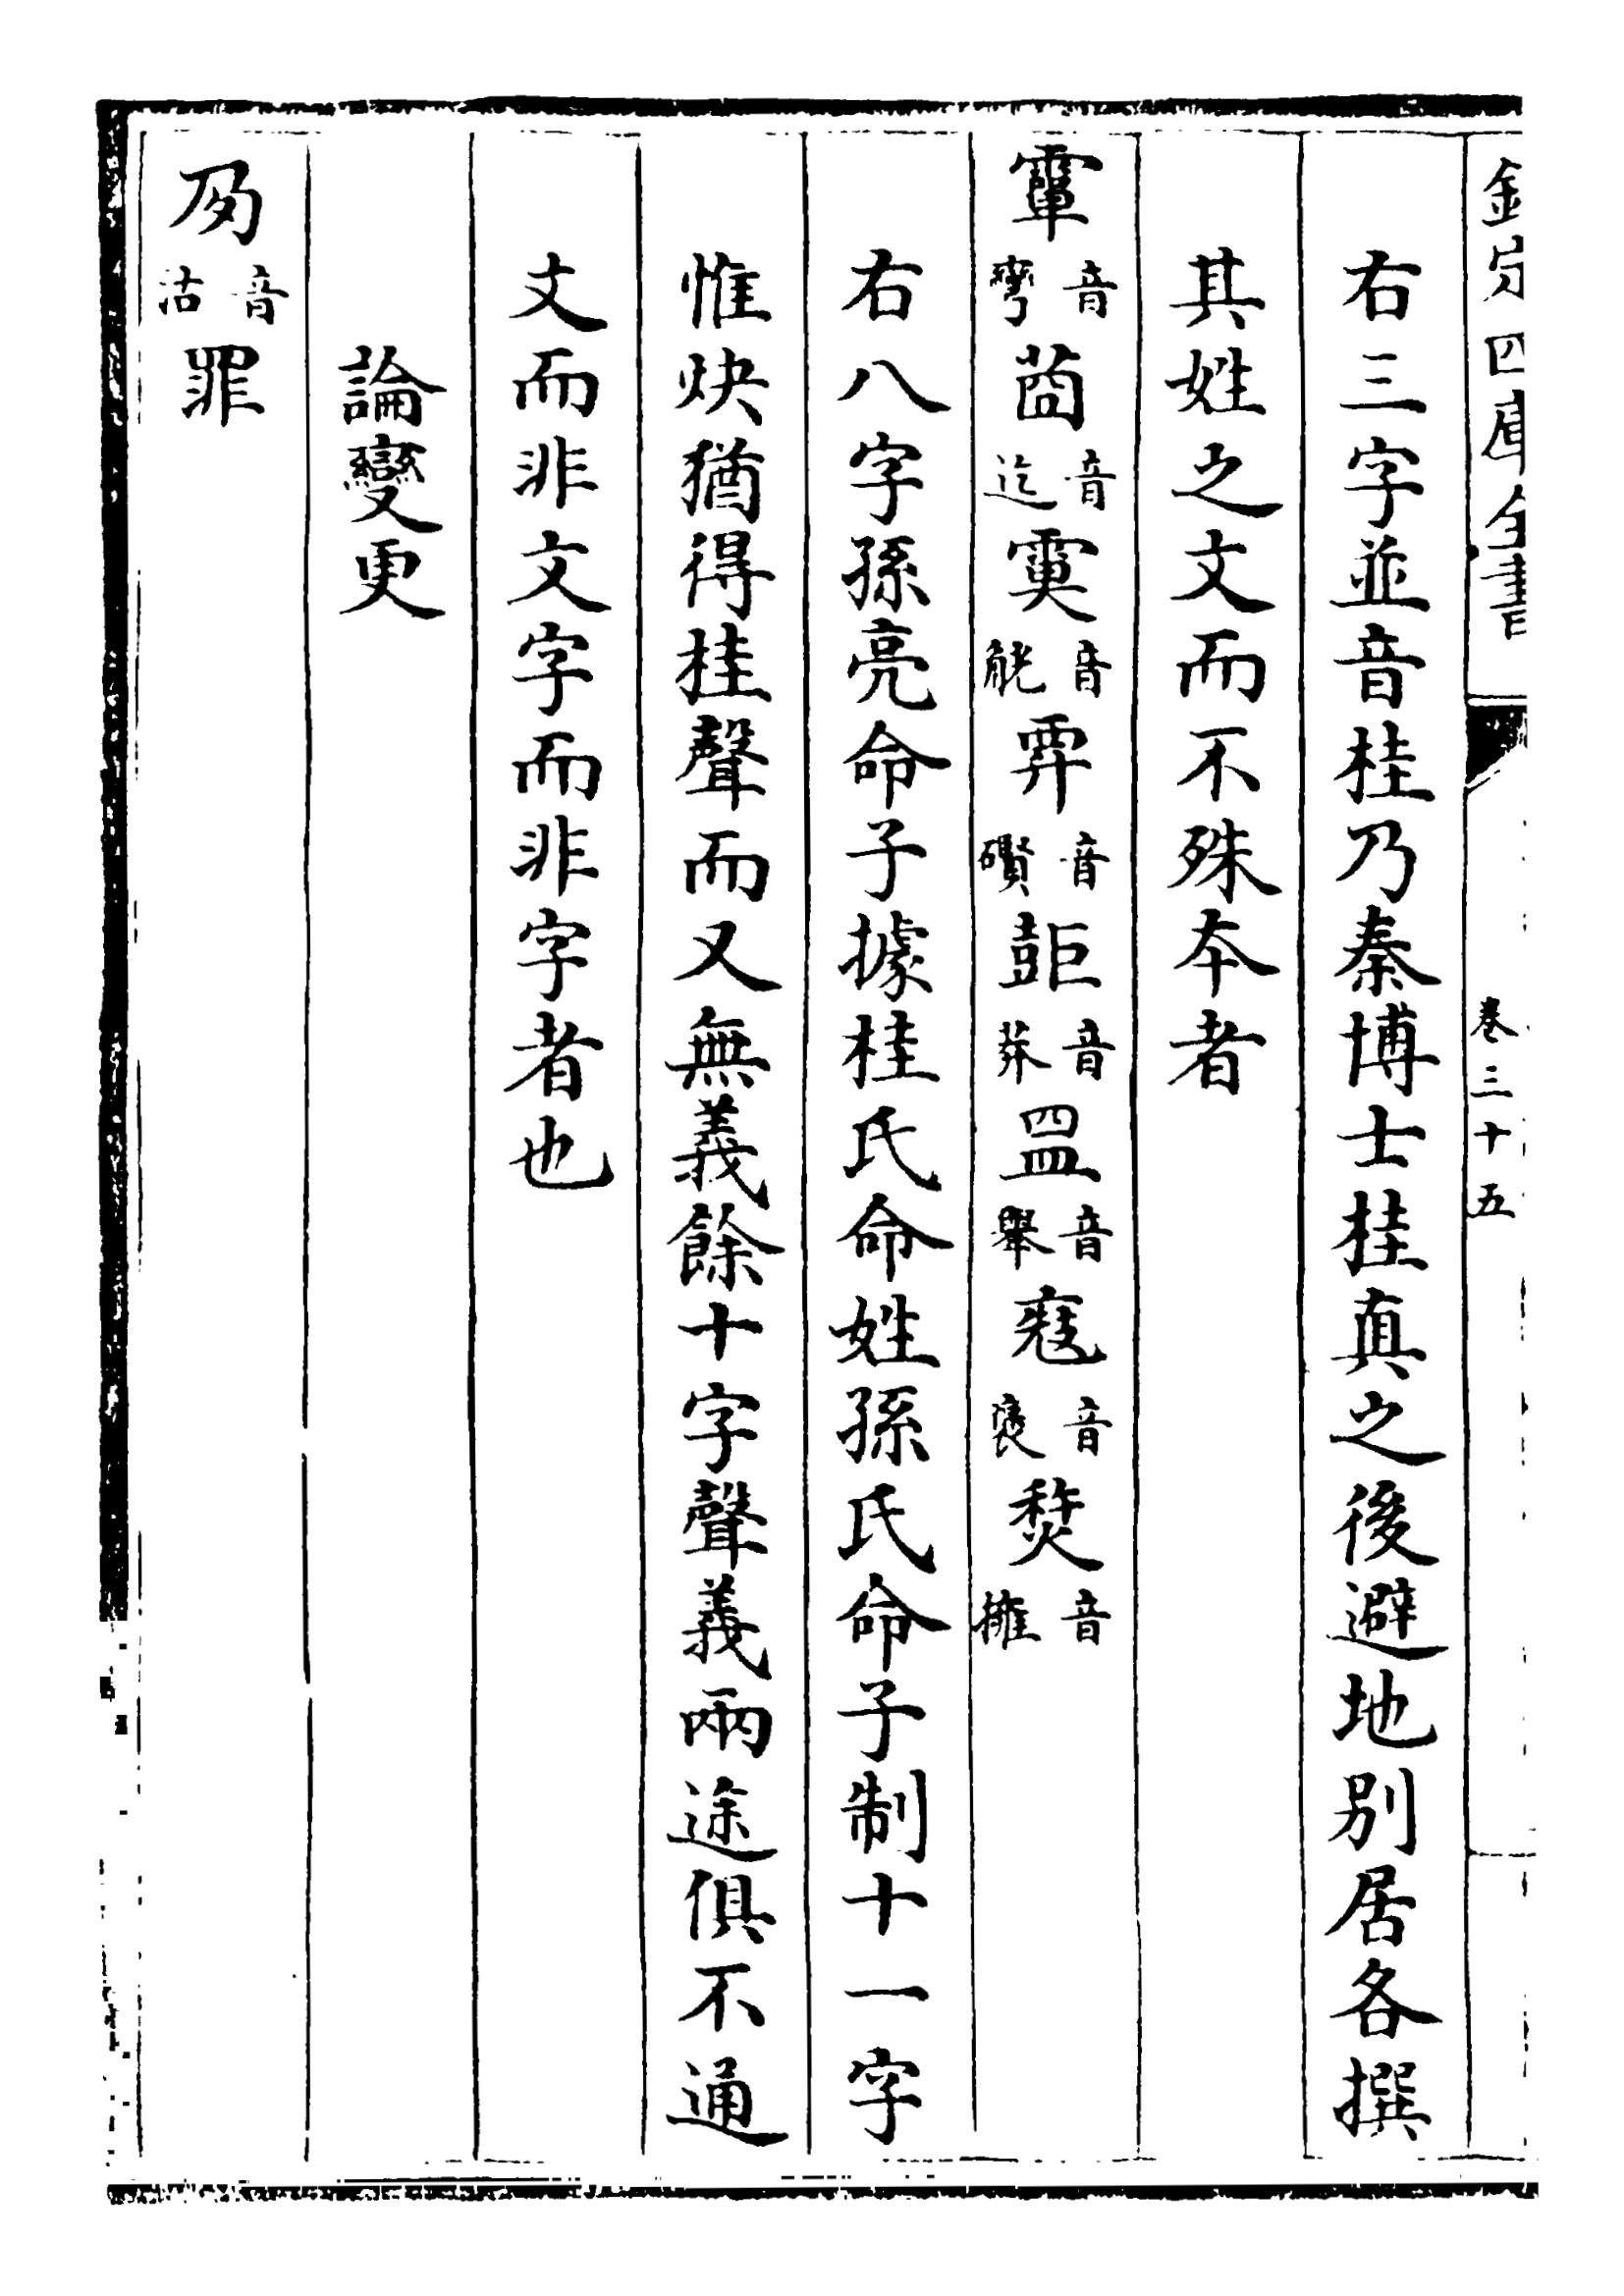 欽定四庫全書 卷三十五
右三字並音桂乃秦博士桂真之後避地別居各撰
其姓之文而不殊本者
𩅦音彎莔音迄𩃙音觥音礥音莽音舉寇音褒音擁
右八字孫亮命子據桂氏命姓孫氏命子制十一字
惟炔猶得桂聲而又無義餘十字聲義兩途俱不通
文而非文字而非字者也
論變更
夃音沽罪